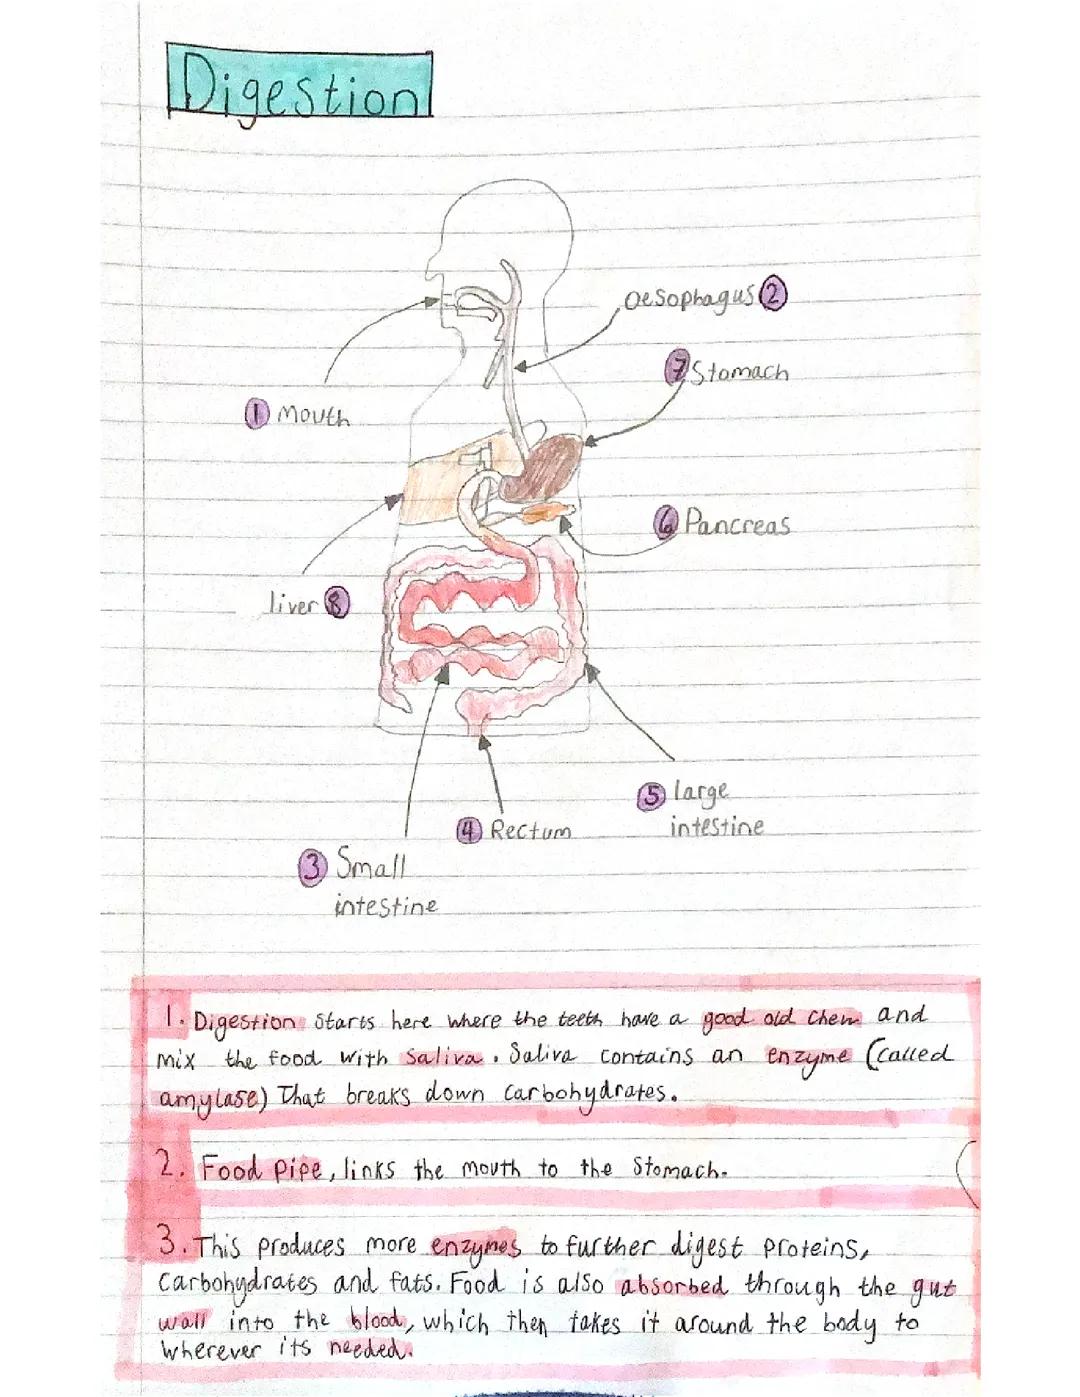 Digestion
oesophagus 2
7 Stomach
1 Mouth
6 Pancreas
liver 8
5 large
intestine
4 Rectum
3 Small
intestine
1. Digestion starts here where the teeth have a good old chew and
mix the food with saliva. Saliva contains an enzyme (called
amylase) That breaks down carbohydrates.
2. Food pipe, links the mouth to the Stomach.
3. This produces more enzymes to further digest proteins,
carbohydrates and fats. Food is also absorbed through the gut
wall into the blood, which then takes it around the body to
wherever its needed.